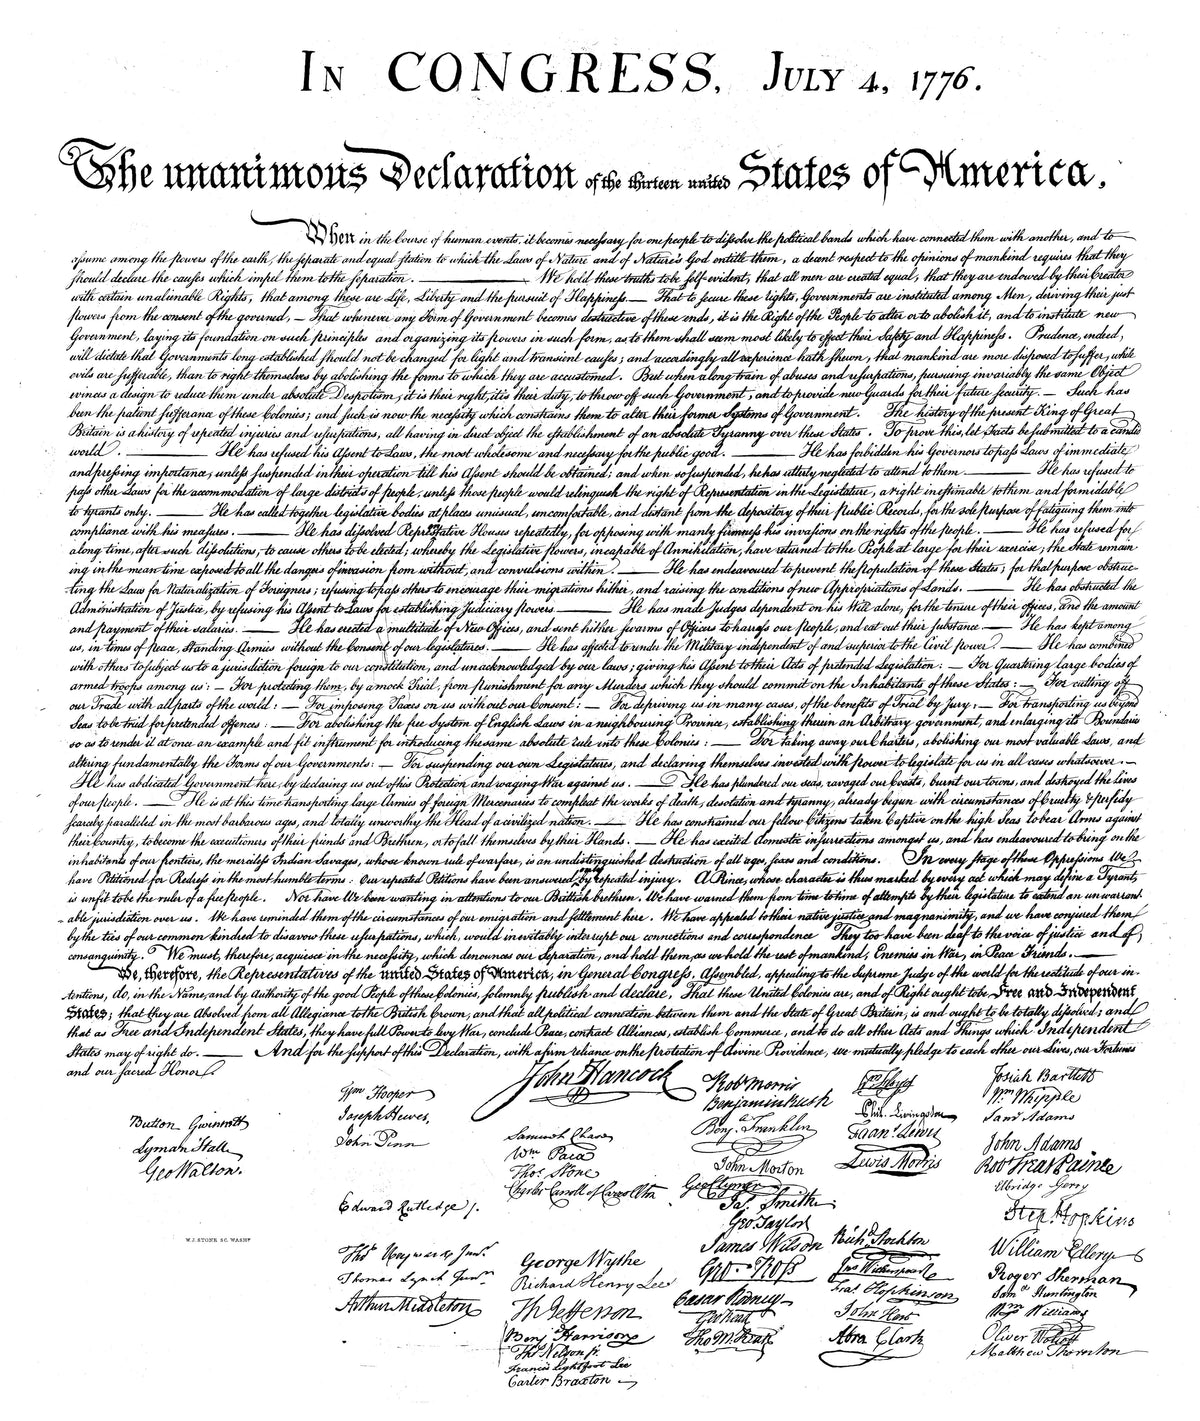 In CONGRESS, July 4, 1776.
The unanimous Declaration of the thirteen united States of America,
When in the Course of human events, it becomes necessary for one people to dissolve the political bands which have connected them with another, and to
assume among the powers of the earth, the separate and equal station to which the Laws of Nature and of Nature's God entitle them, a decent respect to the opinions of mankind requires that they
should declare the causes which impel them to the separation. ——— We hold these truths to be self-evident, that all men are created equal, that they are endowed by their Creator
with certain unalienable Rights, that among these are Life, Liberty and the pursuit of Happiness.— That to secure these rights, Governments are instituted among Men, deriving their just
powers from the consent of the governed, — That whenever any Form of Government becomes destructive of these ends, it is the Right of the People to alter or to abolish it, and to institute new
Government, laying its foundation on such principles and organizing its powers in such form, as to them shall seem most likely to effect their Safety and Happiness. Prudence, indeed,
will dictate that Governments long established should not be changed for light and transient causes; and accordingly all experience hath shewn, that mankind are more disposed to suffer, while
evils are sufferable, than to right themselves by abolishing the forms to which they are accustomed. But when a long train of abuses and usurpations, pursuing invariably the same Object
evinces a design to reduce them under absolute Despotism, it is their right, it is their duty, to throw off such Government, and to provide new Guards for their future security. — Such has
been the patient sufferance of these Colonies; and such is now the necessity which constrains them to alter their former Systems of Government. The history of the present King of Great
Britain is a history of repeated injuries and usurpations, all having in direct object the establishment of an absolute Tyranny over these States. To prove this, let Facts be submitted to a candid
world. ——— He has refused his Assent to Laws, the most wholesome and necessary for the public good. ——— He has forbidden his Governors to pass Laws of immediate
and pressing importance, unless suspended in their operation till his Assent should be obtained; and when so suspended, he has utterly neglected to attend to them. ——— He has refused to
pass other Laws for the accommodation of large districts of people, unless those people would relinquish the right of Representation in the Legislature, a right inestimable to them and formidable
to tyrants only. ——— He has called together legislative bodies at places unusual, uncomfortable, and distant from the depository of their public Records, for the sole purpose of fatiguing them into
compliance with his measures. ——— He has dissolved Representative Houses repeatedly, for opposing with manly firmness his invasions on the rights of the people. ——— He has refused for
a long time, after such dissolutions, to cause others to be elected; whereby the Legislative powers, incapable of Annihilation, have returned to the People at large for their exercise; the State remain-
ing in the mean time exposed to all the dangers of invasion from without, and convulsions within. ——— He has endeavoured to prevent the population of these States; for that purpose obstruc-
ting the Laws for Naturalization of Foreigners; refusing to pass others to encourage their migrations hither, and raising the conditions of new Appropriations of Lands. ——— He has obstructed the
Administration of Justice, by refusing his Assent to Laws for establishing Judiciary powers. ——— He has made Judges dependent on his Will alone, for the tenure of their offices, and the amount
and payment of their salaries. ——— He has erected a multitude of New Offices, and sent hither swarms of Officers to harrass our people, and eat out their substance. — He has kept among
us, in times of peace, Standing Armies without the Consent of our legislatures. ——— He has affected to render the Military independent of and superior to the Civil power. ——— He has combined
with others to subject us to a jurisdiction foreign to our constitution, and unacknowledged by our laws; giving his Assent to their Acts of pretended Legislation: — For Quartering large bodies of
armed troops among us: — For protecting them, by a mock Trial, from punishment for any Murders which they should commit on the Inhabitants of these States: — For cutting off
our Trade with all parts of the world: — For imposing Taxes on us without our Consent: — For depriving us in many cases, of the benefits of Trial by Jury: — For transporting us beyond
Seas to be tried for pretended offences: — For abolishing the free System of English Laws in a neighbouring Province, establishing therein an Arbitrary government, and enlarging its Boundaries
so as to render it at once an example and fit instrument for introducing the same absolute rule into these Colonies: — For taking away our Charters, abolishing our most valuable Laws, and
altering fundamentally the Forms of our Governments: — For suspending our own Legislatures, and declaring themselves invested with power to legislate for us in all cases whatsoever. —
He has abdicated Government here, by declaring us out of his Protection and waging War against us. ——— He has plundered our seas, ravaged our Coasts, burnt our towns, and destroyed the lives
of our people. ——— He is at this time transporting large Armies of foreign Mercenaries to compleat the works of death, desolation and tyranny, already begun with circumstances of Cruelty & perfidy
scarcely paralleled in the most barbarous ages, and totally unworthy the Head of a civilized nation. ——— He has constrained our fellow Citizens taken Captive on the high Seas to bear Arms against
their Country, to become the executioners of their friends and Brethren, or to fall themselves by their Hands. ——— He has excited domestic insurrections amongst us, and has endeavoured to bring on the
inhabitants of our frontiers, the merciless Indian Savages, whose known rule of warfare, is an undistinguished destruction of all ages, sexes and conditions. In every stage of these Oppressions We
have Petitioned for Redress in the most humble terms: Our repeated Petitions have been answered only by repeated injury. A Prince, whose character is thus marked by every act which may define a Tyrant,
is unfit to be the ruler of a free people. Nor have We been wanting in attentions to our Brittish brethren. We have warned them from time to time of attempts by their legislature to extend an unwarrant-
able jurisdiction over us. We have reminded them of the circumstances of our emigration and settlement here. We have appealed to their native justice and magnanimity, and we have conjured them
by the ties of our common kindred to disavow these usurpations, which, would inevitably interrupt our connections and correspondence They too have been deaf to the voice of justice and of
consanguinity. We must, therefore, acquiesce in the necessity, which denounces our Separation, and hold them, as we hold the rest of mankind, Enemies in War, in Peace Friends. ———
We, therefore, the Representatives of the united States of America, in General Congress, Assembled, appealing to the Supreme Judge of the world for the rectitude of our in-
tentions, do, in the Name, and by Authority of the good People of these Colonies, solemnly publish and declare, That these United Colonies are, and of Right ought to be Free and Independent
States; that they are Absolved from all Allegiance to the British Crown, and that all political connection between them and the State of Great Britain, is and ought to be totally dissolved; and
that as Free and Independent States, they have full Power to levy War, conclude Peace, contract Alliances, establish Commerce, and to do all other Acts and Things which Independent
States may of right do. ——— And for the support of this Declaration, with a firm reliance on the protection of divine Providence, we mutually pledge to each other our Lives, our Fortunes
and our sacred Honor.
Button Gwinnett
Lyman Hall
Geo Walton.
Wm Hooper
Joseph Hewes,
John Penn
Edward Rutledge /.
Thos Heyward Junr.
Thomas Lynch Junr.
Arthur Middleton
John Hancock
Samuel Chase
Wm. Paca
Thos. Stone
Charles Carroll of Carrollton
George Wythe
Richard Henry Lee
Th Jefferson
Benj. Harrison
Thos Nelson jr.
Francis Lightfoot Lee
Carter Braxton
Robt Morris
Benjamin Rush
Benja. Franklin
John Morton
Geo Clymer
Jas. Smith
Geo. Taylor
James Wilson
Geo. Ross
Caesar Rodney
Geo Read
Tho M:Kean
Wm Floyd
Phil. Livingston
Frans. Lewis
Lewis Morris
Richd. Stockton
Jno Witherspoon
Fras. Hopkinson
John Hart
Abra Clark
Josiah Bartlett
Wm. Whipple
Saml Adams
John Adams
Robt Treat Paine
Elbridge Gerry
Step. Hopkins
William Ellery
Roger Sherman
Samel Huntington
Wm. Williams
Oliver Wolcott
Matthew Thornton
W. J. STONE SC. WASHN.